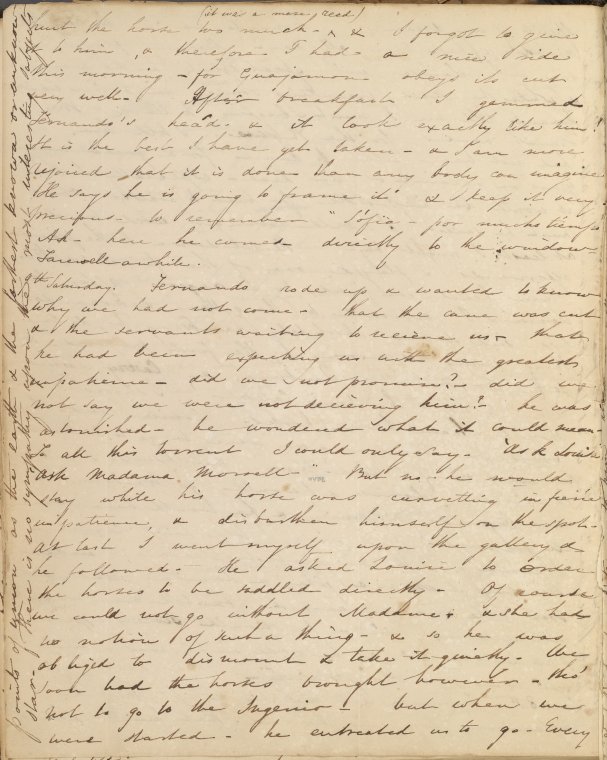 (it was a mere reed)
hurt the horse too much - & I forgot to give
it to him, & therefore I had a nice ride
this morning - for Guajamon obeys its cut
very well. After breakfast I gammed
Fernando's head - & it look exactly like him!
It is the best I have yet taken - & I am more
rejoiced that it is done than any body can imagine
He says he is going to frame it & keep it very
precious - to remember "Sofia - por mucho tiempo
Ah - here he comes - directly to the window -
Farewell awhile.
th Saturday. Fernando rode up & wanted to know
why we had not come - that the cane was cut
& the servants waiting to receive us - that
he had been expecting us with the greatest
impatience - did we not promise? - did we
not say we were not deceiving him? - he was
astonished - he wondered what it could mean -
To all this torrent I could only say - "Ask Louise
ask Madama Morrell -" But no - he would
stay while his horse was curvetting in fierce
impatience, & disburthen himself on the spot -
At last I went myself upon the gallery &
he followed - He asked Louise to order
the horses to be saddled directly - Of course
we could not go without Madame, & she had
no notion of such a thing - & so he was
obliged to dismount & take it quietly. We
soon had the horses brought however - tho'
not to go to the Ingenio - but when we
were started - he entreated us to go - Every
points of union as the earth & the farthest known or unknown
star - There is no sympathy upon the most interesting subjects